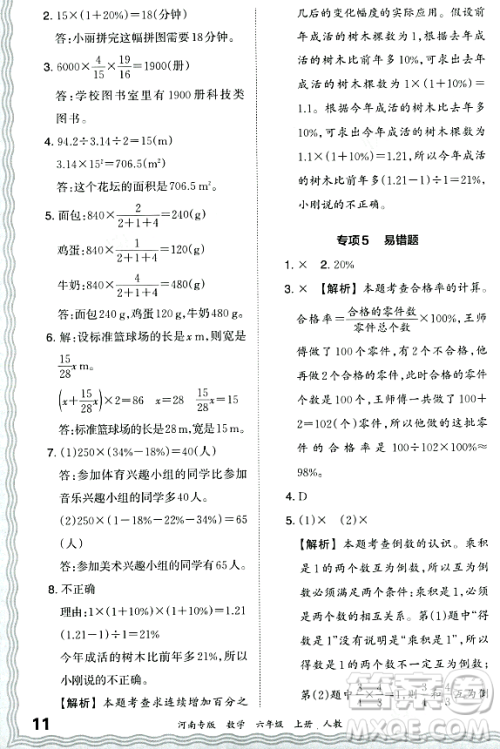 2. 15×(1+20%)=18(分钟)
答:小丽拼完这幅拼图需要18分钟。
3. 6000×4/15×19/16=1900(册)
答:学校图书室里有1900册科技类
图书。
4. 94.2÷3.14÷2=15(m)
3.14×15²=706.5(m²)
答:这个花坛的面积是706.5 m²。
5. 面包:840×2/(2+1+4)=240(g)
鸡蛋:840×1/(2+1+4)=120(g)
牛奶:840×4/(2+1+4)=480(g)
答:面包240 g,鸡蛋120 g,牛奶480 g。
6. 解:设标准篮球场的长是x m,则宽是
15/28 x m。
(x+15/28 x)×2=86 x=28
答:标准篮球场的长是28 m,宽是15 m。
7. (1)250×(34%-18%)=40(人)
答:参加体育兴趣小组的同学比参加
音乐兴趣小组的同学多40人。
(2)250×(1-18%-22%-34%)=65
(人)
答:参加美术兴趣小组的有65人。
8. 不正确
理由:1×(1+10%)×(1+10%)=1.21
(1.21-1)÷1×100%=21%
今年成活的树木比前年多21%,所以
小刚说的不正确。
【解析】本题考查求连续增加百分之
几后的变化幅度的实际应用。假设前
年成活的树木棵数为1,根据去年成
活的树木棵数比前年多10%,可求出
去年成活的树木棵数为1×(1+10%)=
1.1。根据今年成活的树木比去年多
10%,可求出今年成活的树木棵数为
1.1×(1+10%)=1.21。所以今年成活
的树木比前年多(1.21-1)÷1=21%,
小刚说的不正确。
专项5 易错题
1. × 2. 20%
3. × 【解析】本题考查合格率的计算。
合格率=合格的零件数/零件总个数×100%,王师
傅做了100个零件,有2个不合格,他
又做了2个合格的零件,王师傅一共做
了100+2=102(个)零件,其中合格的
零件有100个,所以他做的这批零件
的合格率是100÷102×100%≈
98%。
4. D
5. (1)× (2)×
【解析】本题考查倒数的认识。乘积
是1的两个数互为倒数,倒数必须满足
乘积是1和两个数。第(1)题中“乘积
是1的几个数”没有说明是两个数,第
(2)题中“
11 河南专版 数学 六年级 上册 人教